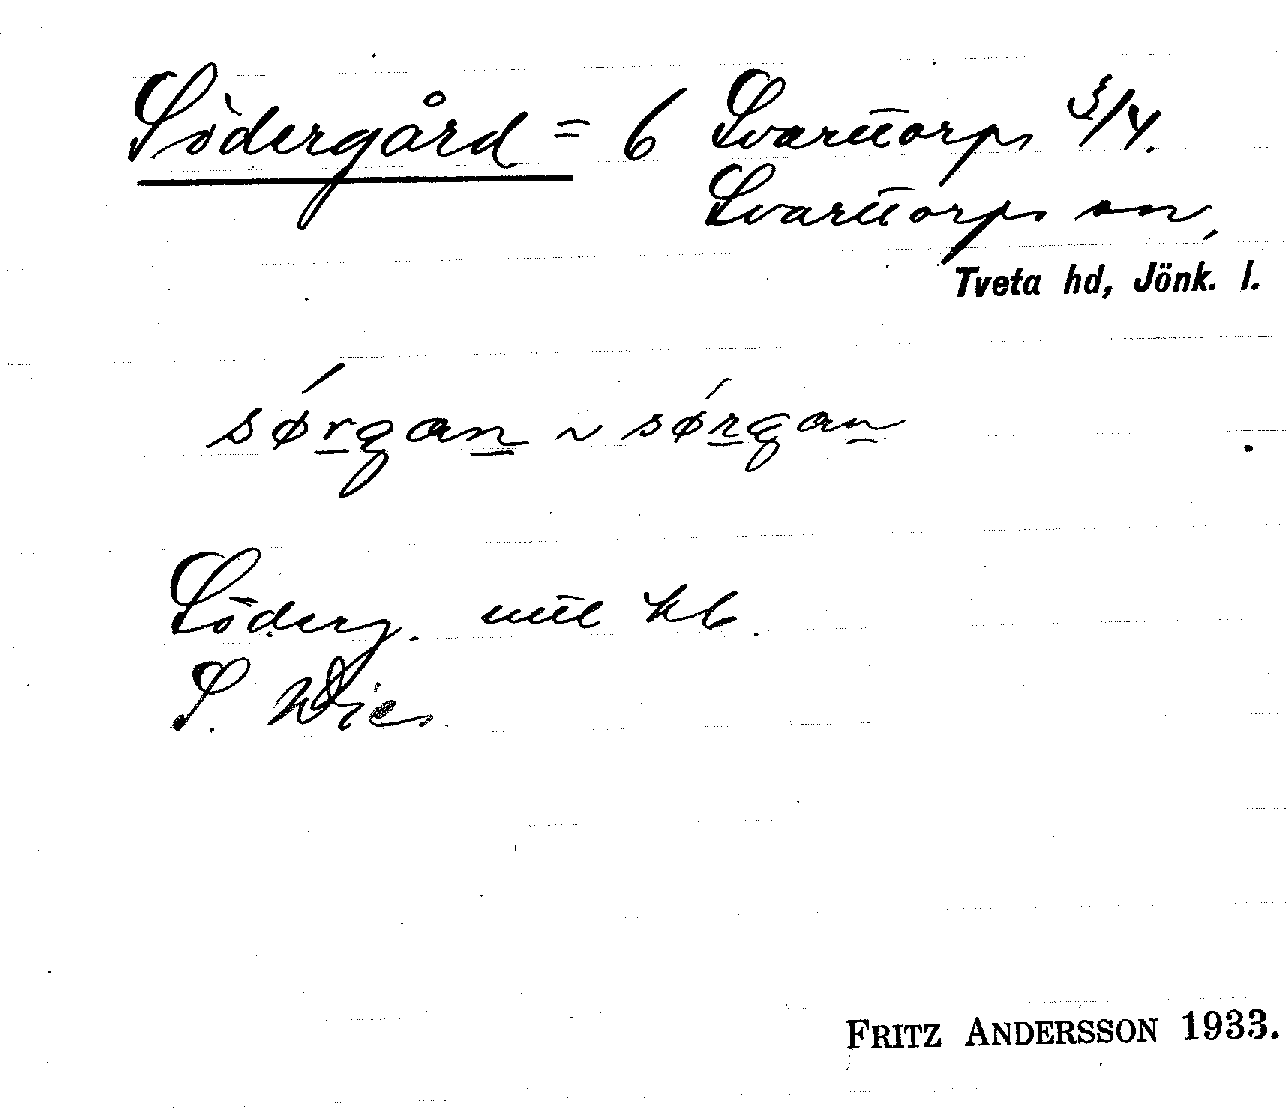 Södergård = 6 Svarttorps 3/4.
Svarttorps sn,
Tveta hd, Jönk. l.
sørgan ~ sørgan
Söderg. mtl kb.
S.
FRITZ ANDERSSON 1933.